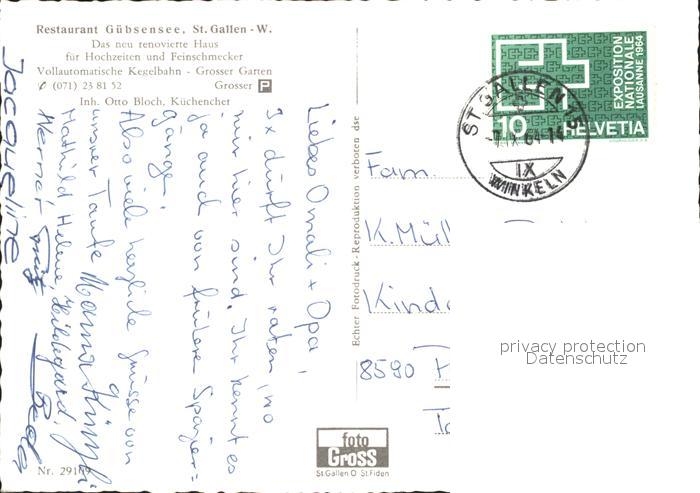 Restaurant Gübsensee, St. Gallen-W.
Das neu renovierte Haus
für Hochzeiten und Feinschmecker
Vollautomatische Kegelbahn - Grosser Garten
✆ (071) 23 81 52 Grosser P
Inh. Otto Bloch, Küchenchef
Liebes Omali + Opa,
3x dürft Ihr raten, wo
wir hier sind. Ihr kennt es
ja auch von frühere Spazier=
gänge.
Also viele herzliche Grüsse von
unsrer Tante
Mathild Helene, Hildegard,
Werner
Jacqueline
Echter Fotodruck - Reproduktion verboten
Fam.
K. Mül
Kind
8590
EXPOSITION
NATIONALE
LAUSANNE 1964
10 HELVETIA
ST. GALLEN 15
IX
WINKELN
privacy protection
Datenschutz
foto
Gross
St. Gallen O St. Fiden
Nr. 29169